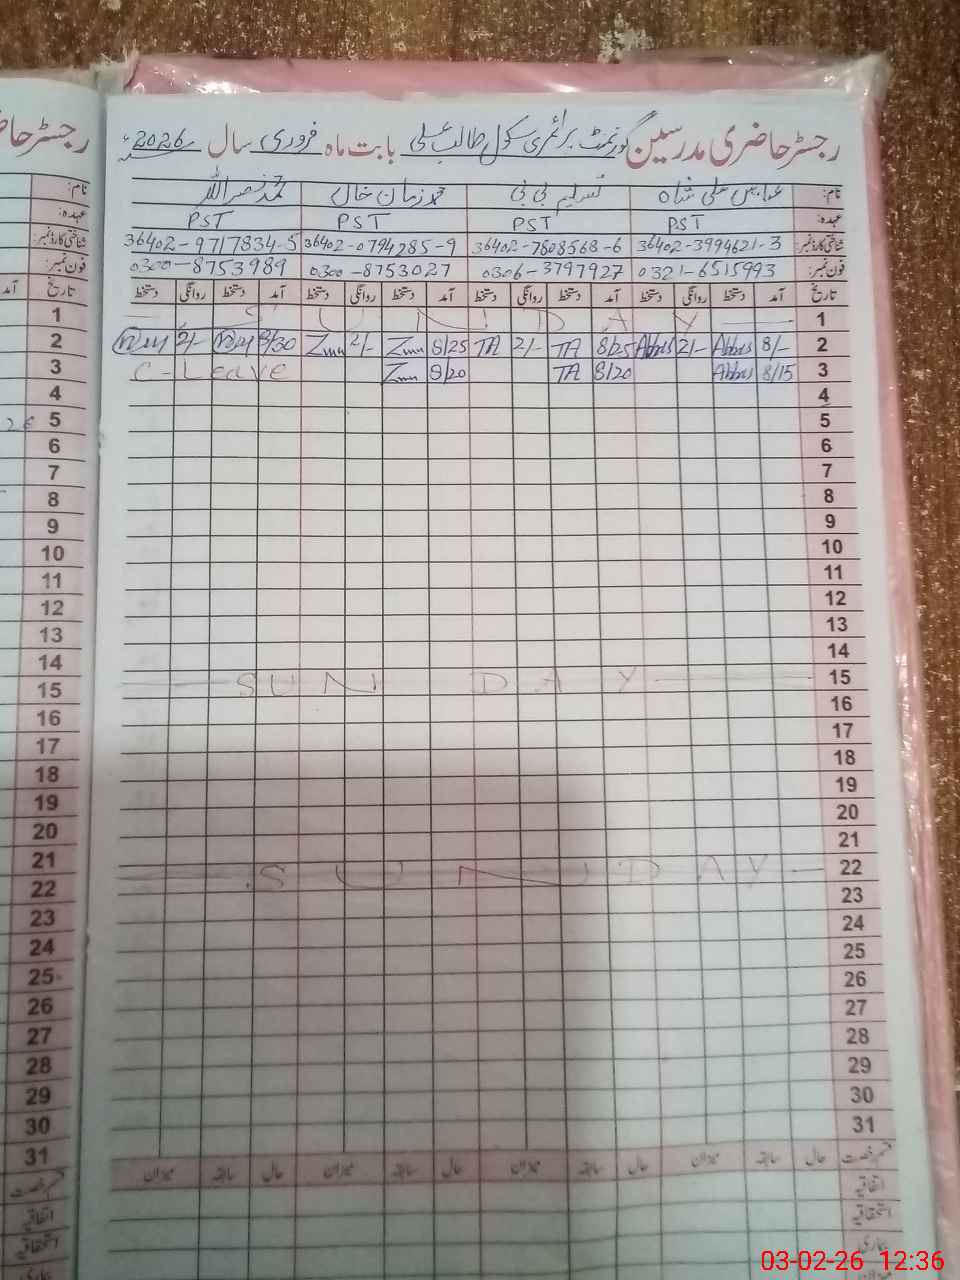 رجسٹر حاضری مدرسین گورنمنٹ پرائمری سکول طالب علی بابت ماہ فروری سال 2026ء
نام: عباس علی شاہ تسلیم بی بی محمد زمان خان محمد نصر اللہ
عہدہ: PST PST PST PST
شناختی کارڈ نمبر: 36402-3994621-3 36402-7808568-6 36402-0794285-9 36402-9717834-5
فون نمبر: 0321-6515993 0306-3797927 0300-8753027 0300-8753989
تاریخ آمد دستخط روانگی دستخط آمد دستخط روانگی دستخط آمد دستخط روانگی دستخط آمد دستخط روانگی دستخط تاریخ آمد
1 S U N D A Y 1
2 8/- Abbas 2/- Abbas 8/25 TA 2/- TA 8/25 Zmn 2/- Zmn 8/30 2/- 2
3 8/15 Abbas 8/20 TA 8/20 Zmn C-Leave 3
4 4
5 5
6 6
7 7
8 8
9 9
10 10
11 11
12 12
13 13
14 14
15 SUN DAY 15
16 16
17 17
18 18
19 19
20 20
21 21
22 S U N D A Y 22
23 23
24 24
25 25
26 26
27 27
28 28
29 29
30 30
31 31
قسم رخصت حال سابقہ میزان حال سابقہ میزان حال سابقہ میزان حال سابقہ میزان قسم رخصت
اتفاقیہ اتفاقیہ
استحقاقیہ استحقاقیہ
بیماری بیماری
میزان
03-02-26 12:36